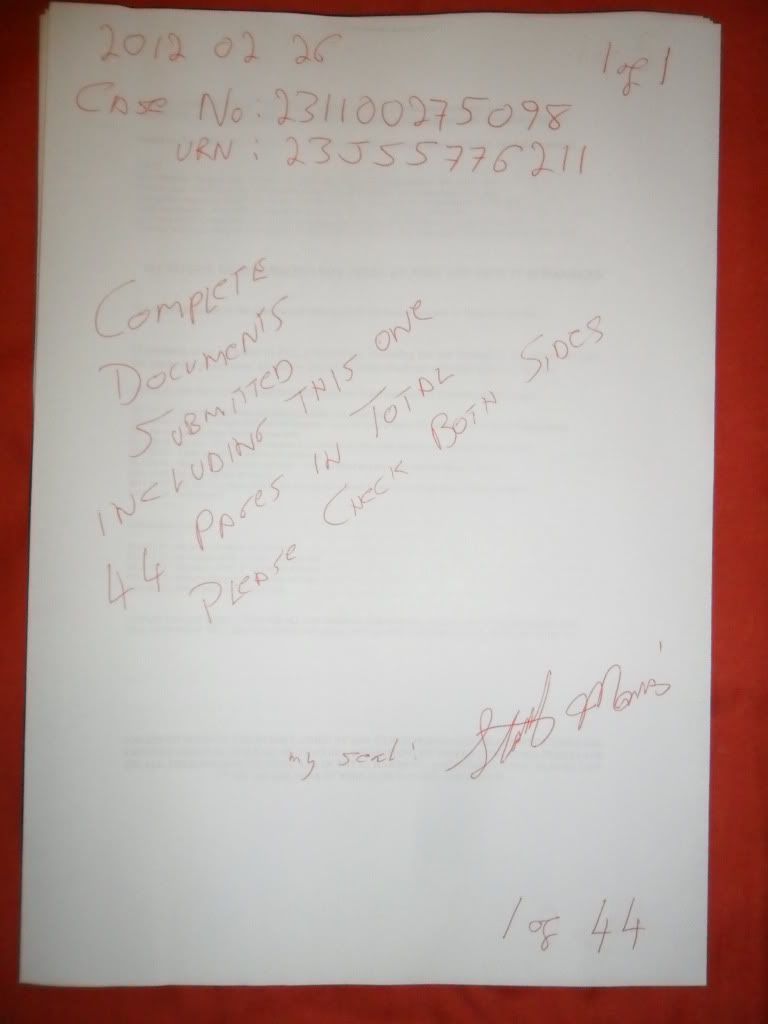 2012 02 26
1 of 1
CASE No: 231100275098
URN: 23JS5776211
COMPLETE
DOCUMENTS
SUBMITTED
INCLUDING THIS ONE
44 PAGES IN TOTAL
PLEASE CHECK BOTH SIDES
my seal:
1 of 44